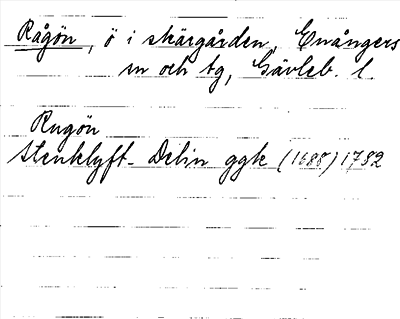 Rågön, ö i skärgården, Enångers
sn och tg, Gävleb. l.
Rugön
Stenklyft- Delin ggk (1688) 1782